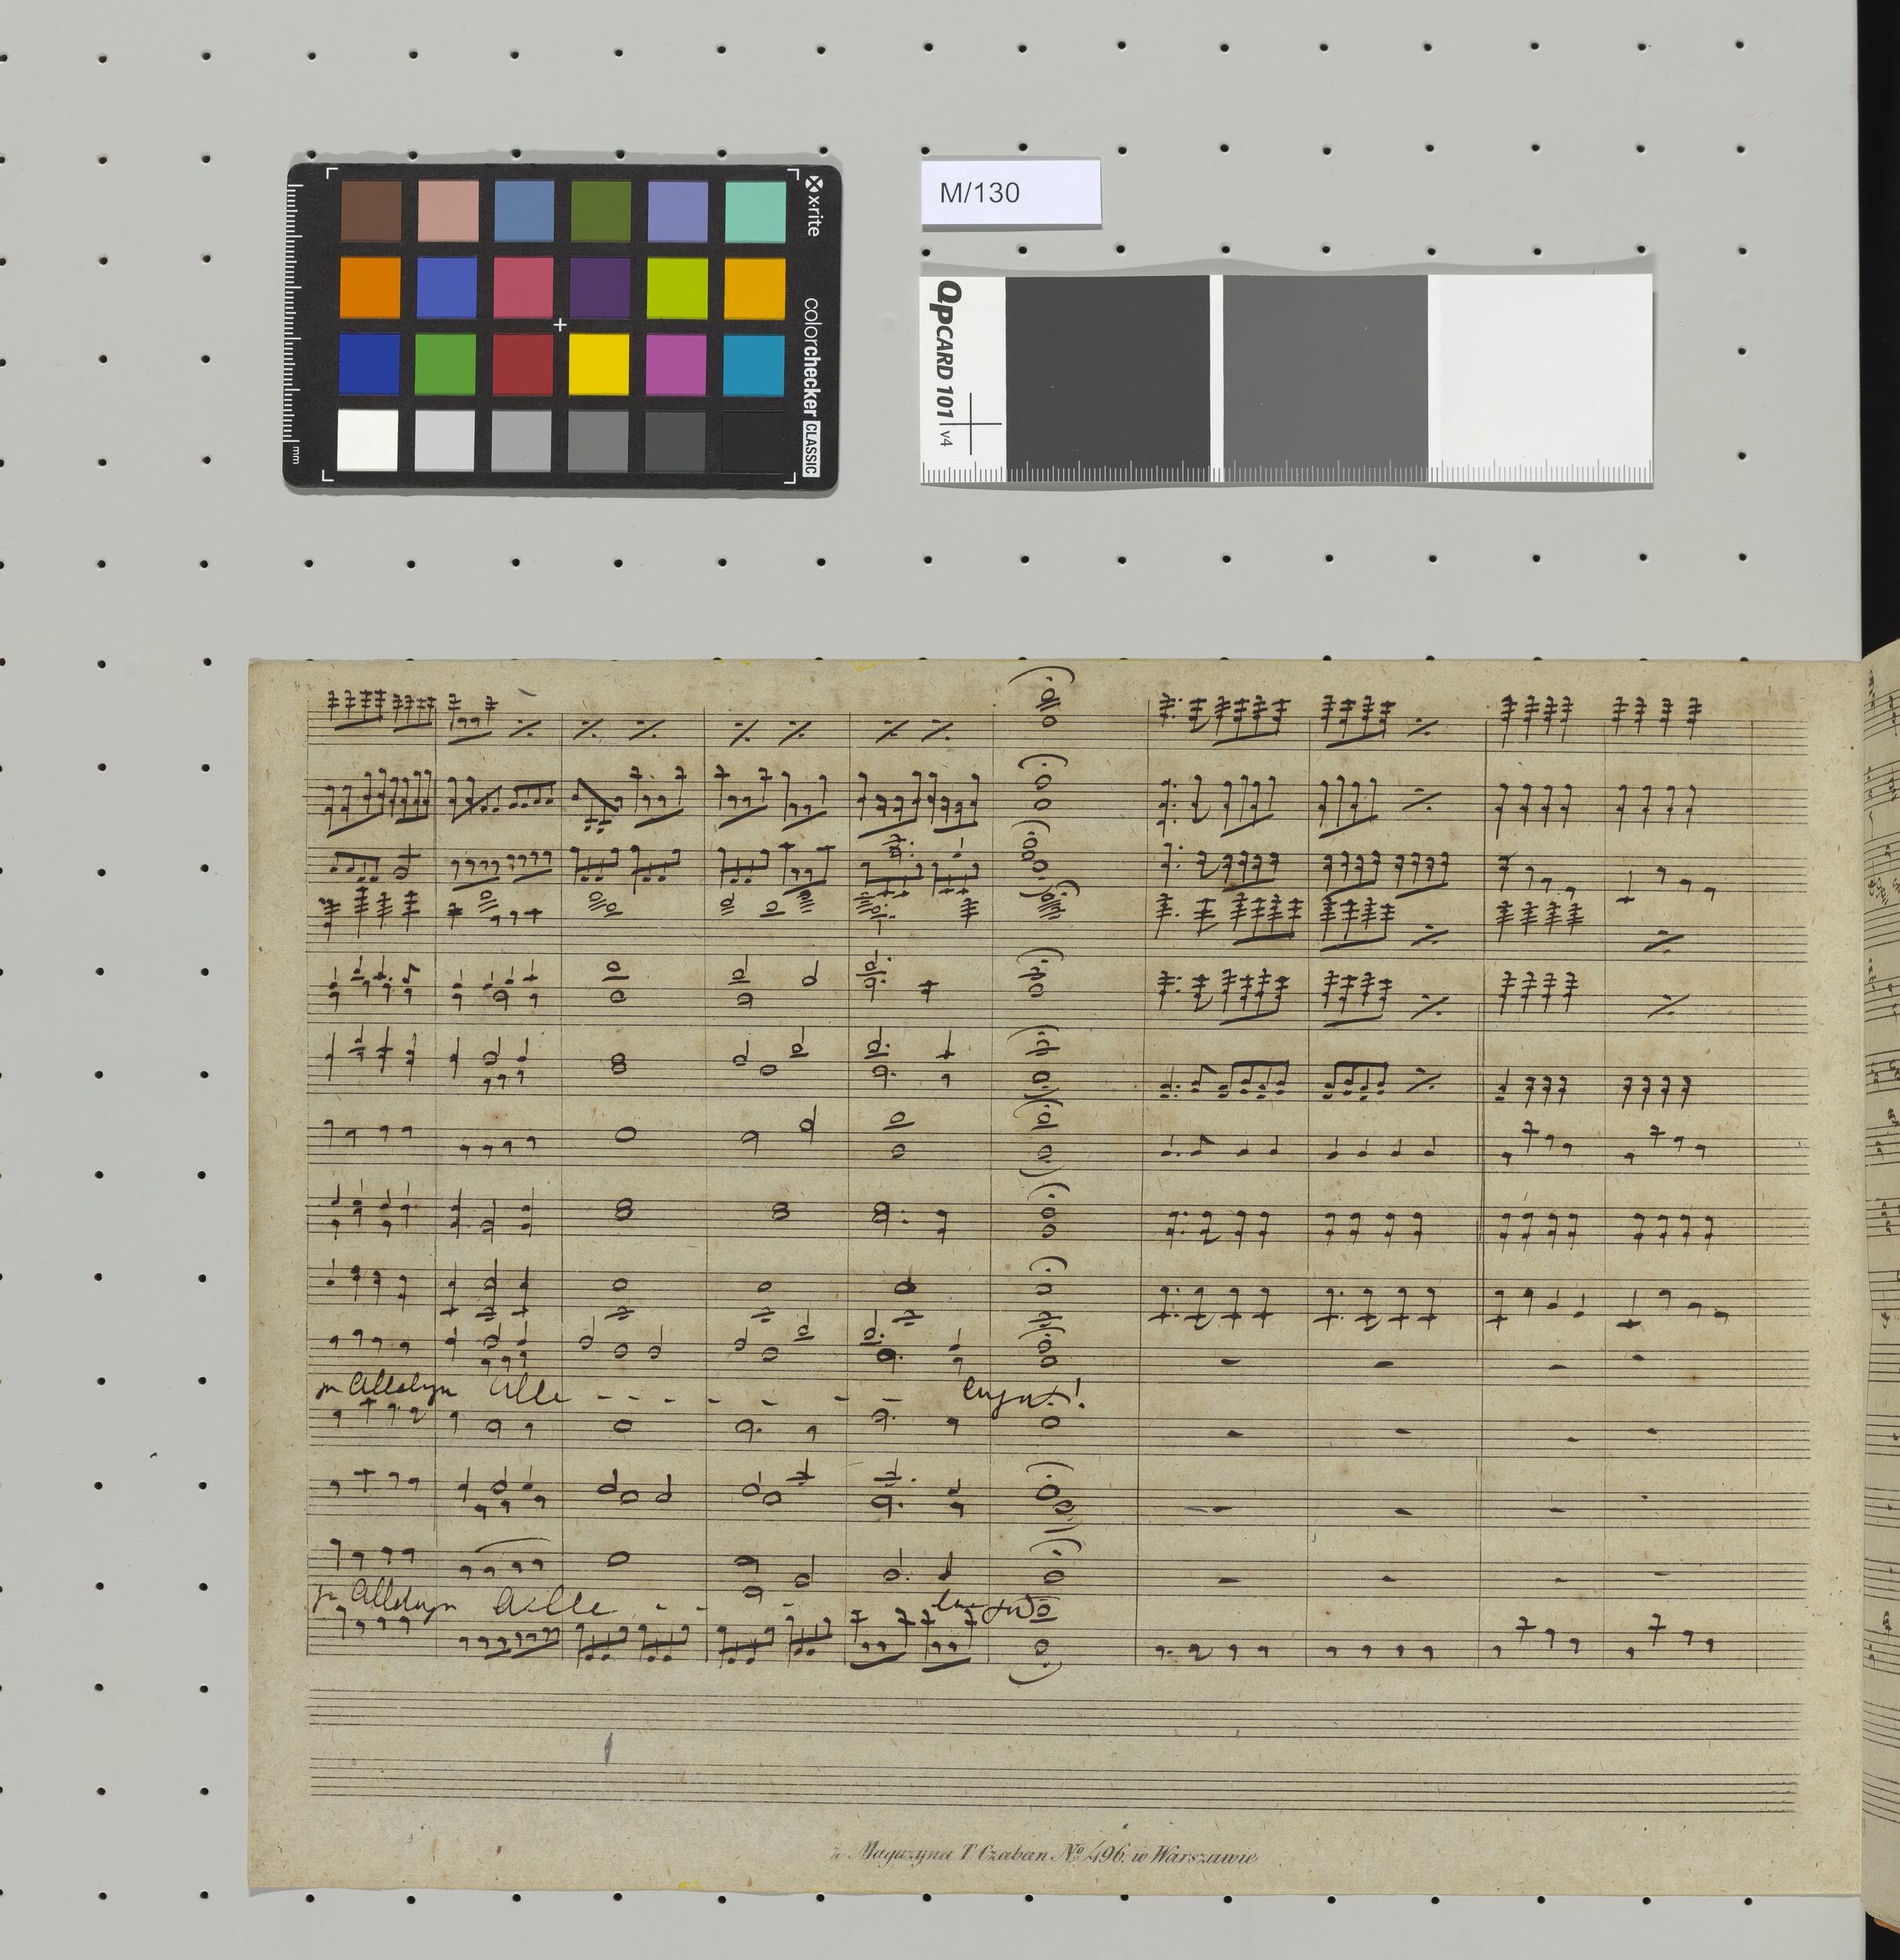 x-rite
colorchecker CLASSIC
mm
M/130
QPCARD 101 v4
Alleluja Alle - - - - - - luja!
Alleluja Alle - - luja
z Magazynu T Czaban No 496. w Warszawie